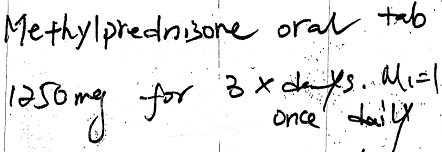 Methylprednisone oral tab
1250mg for 3 x days. M1=1
once daily